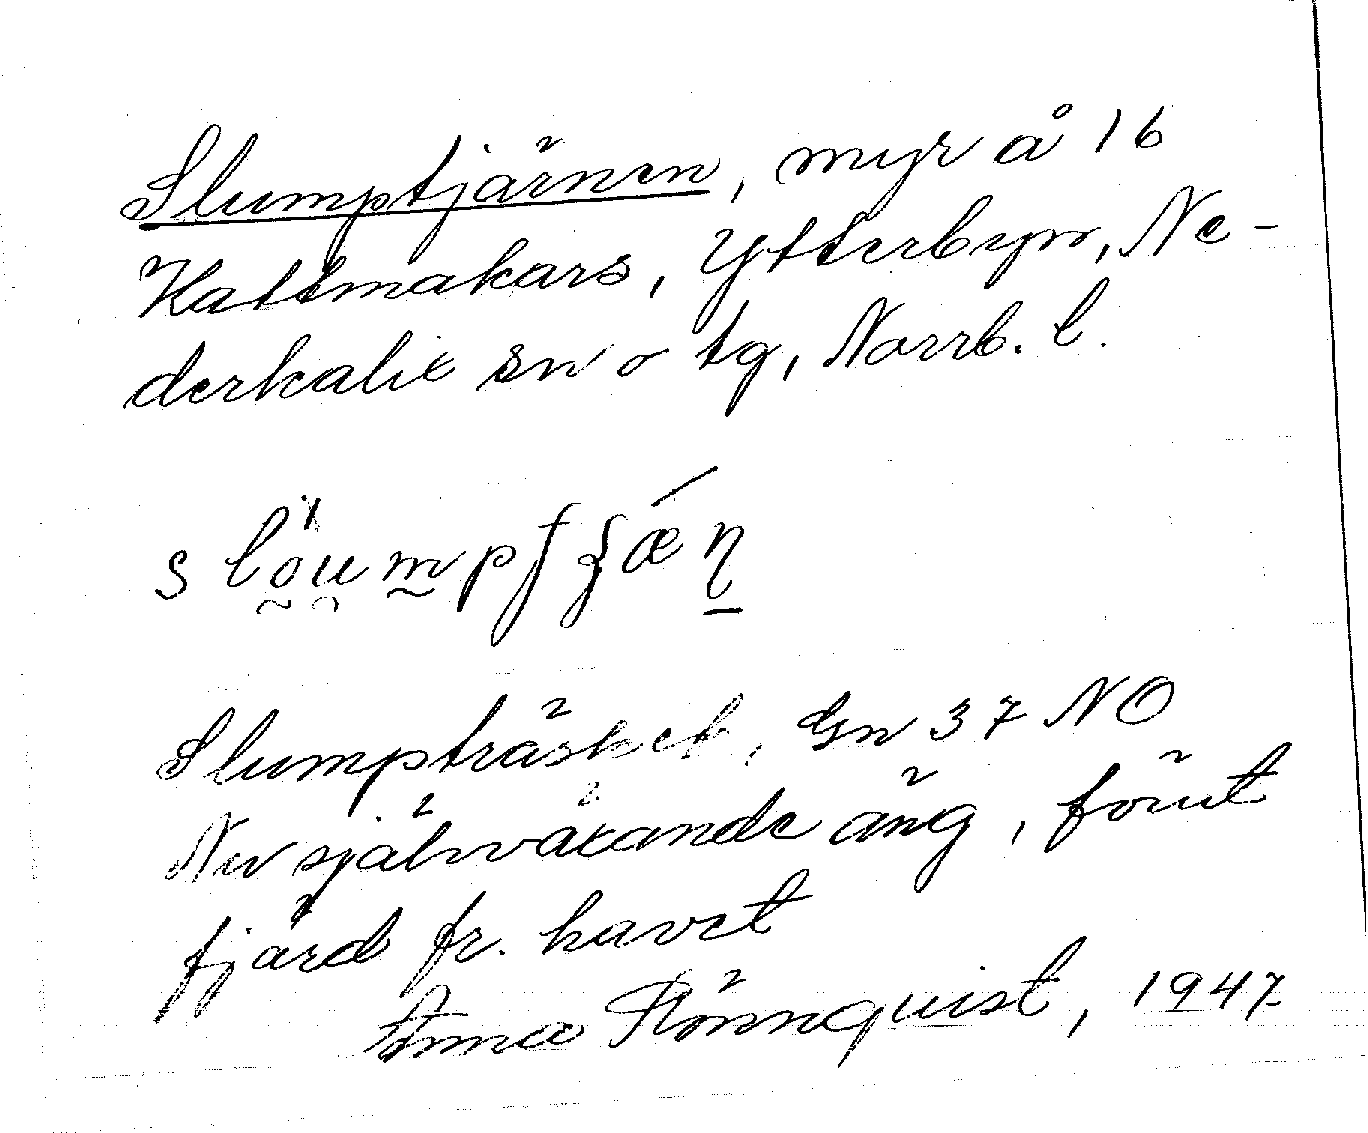 Slumptjärnen, myr å 16
Kattmakars, Ytterbyn, Ne-
derkalix sn o tg, Norrb. l.
Slumpträsket, Gn 37 NO
Nu självväxande äng, förut
fjärd fr. havet
Anna Rönnquist, 1947